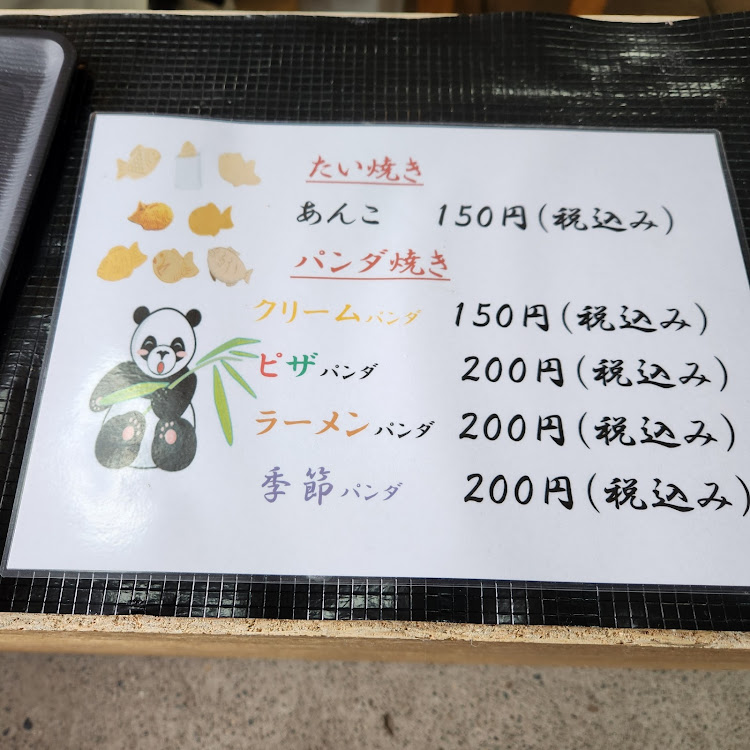 たい焼き
あんこ 150円(税込み)
パンダ焼き
クリームパンダ 150円(税込み)
ピザパンダ 200円(税込み)
ラーメンパンダ 200円(税込み)
季節パンダ 200円(税込み)